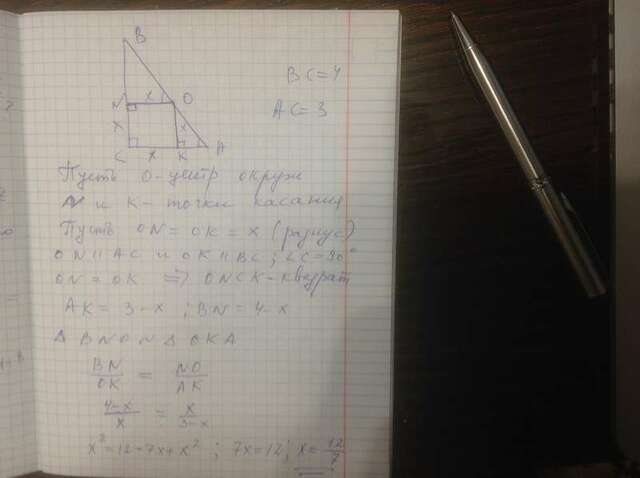 B
BC=4
N x O
AC=3
x x
C x K A
Пусть O-центр окружн
N и K - точки касания
Пусть ON = OK = x (радиус)
ON || AC и OK || BC ; ∠C = 90°
ON = OK => ONCK - квадрат
AK = 3-x ; BN = 4-x
Δ BNO ~ Δ OKA
BN/OK = NO/AK
4-x/x = x/3-x
x² = 12-7x+x² ; 7x=12 ; x=12/7